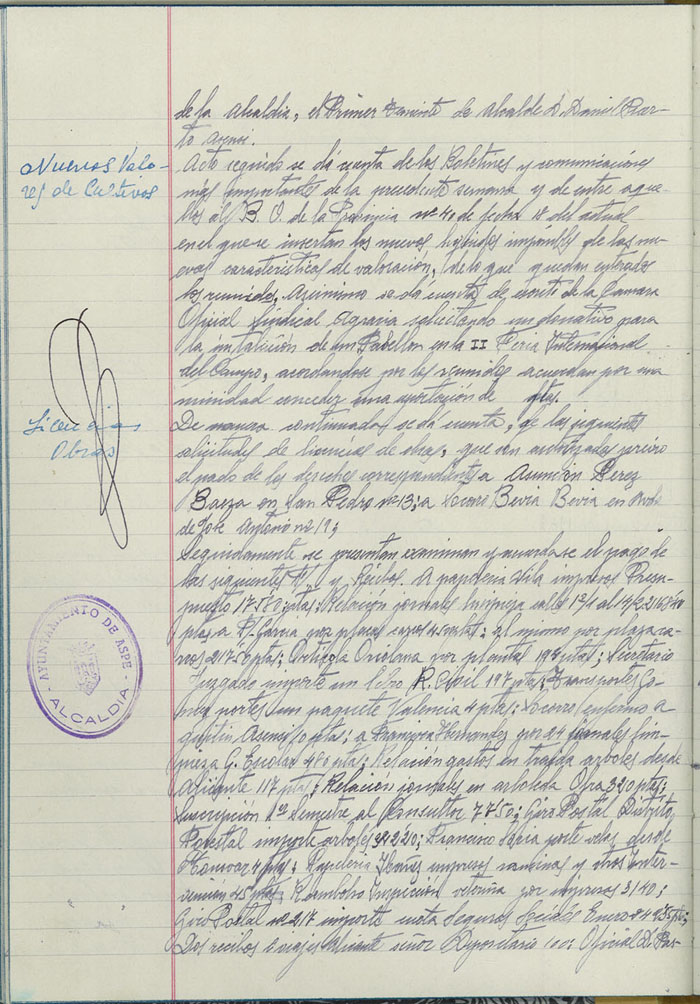 de la Alcaldia, el Primer Teniente de Alcalde D. Daniel
Nuevos Valo-
res de Cultivos
Acto seguido se dá cuenta de los Boletines y comunicaciones
mas importantes de la precedente semana y de entre aque
llos al B. O. de la Provincia nº 40 de fecha 18 del actual
en el que se insertan los nuevos líquidos imponibles de las nu-
evas caracteristicas de valoración, de lo que quedan enterados
los reunidos. Asimismo se dá cuenta de escrito de la Camara
Oficial Sindical Agraria solicitando un donativo para
la instalación de un Pabellon en la II Feria Internacional
del Campo, acordandose por los reunidos acuerdan por una
nimidad conceder una aportación de ptas.
Licencias
Obras
De manera continuada se da cuenta, de las siguientes
solicitudes de licencias de obras, que son autorizadas previo
el pado de los derechos correspondientes a Asunción Perez
Baeza en San Pedro nº 13; a Socorro Bevia Bevia en Avda
de José Antonio nº 19;
Seguidamente se presentan examinan y acuerdase el pago de
las siguientes y recibos. A papeleria Vila impresos Presu-
puesto 17'50 ptas; Relación jornales limpieza calles
García por placas ; al mismo por placa ca-
rros 217'50 ptas; Ortigia Oriolana por plantas 195 ptas; Secretario
Juzgado importe un libro R. Civil 197 ptas; Transportes Go-
mez portes un paquete Valencia 4 ptas; Socorro enfermo a
Asencio ptas; a Francisca Hernandez por 24 jornales lim-
pieza G. Escolar 480 ptas; Relación gastos en traida arboles desde
Alicante 117 ptas; Relación jornales en arboleda Ofra 320 ptas;
Suscripción 1er Semestre al Consultor 77'50; Giro Postal Distrito
Forestal importe arboles 342'20; Francisco porte velas desde
Monovar 4 ptas; Papeleria Ibañez impresos nominas y otros Inter-
vención 45 ptas; Reembolso Inspección veterina por impresos 31'40;
Giro Postal nº 217 importe cuota Seguros Sociales Enero
Dos recibos a viajes Alicante señor Depositario 100; Oficial
AYUNTAMIENTO DE ASPE
ALCALDIA